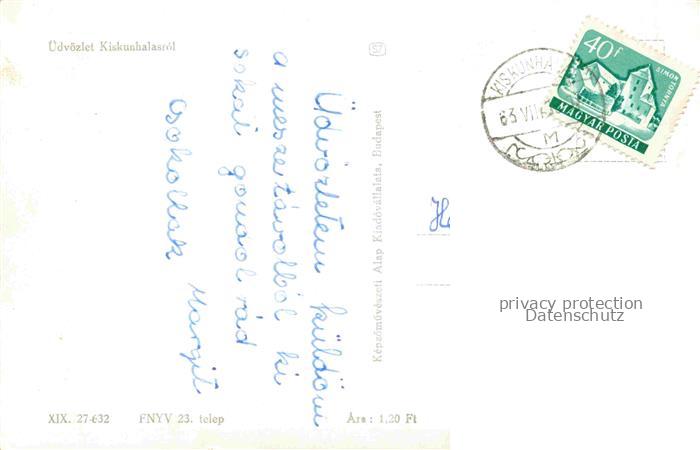 Üdvözlet Kiskunhalasról
Üdvözletem küldöm
a messzetávolból ki
sokat gondol rád
csokollak Margit
Képzőművészeti Alap Kiadóvállalata, Budapest
XIX. 27-632 FNYV 23. telep Ára: 1,20 Ft
40f
SIMON
TORNYA
MAGYAR POSTA
KISKUNHA
63 VII
M
privacy protection
Datenschutz